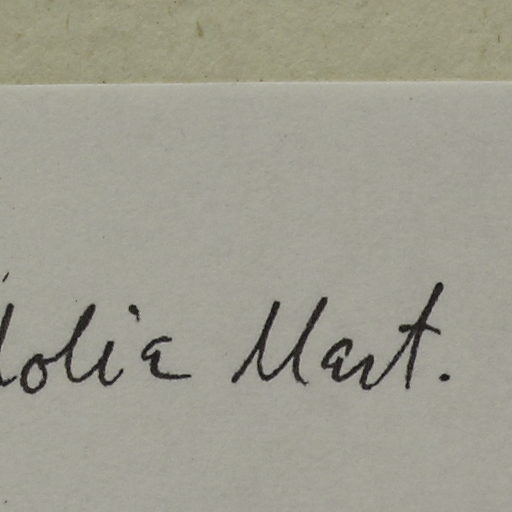 folia Mart.